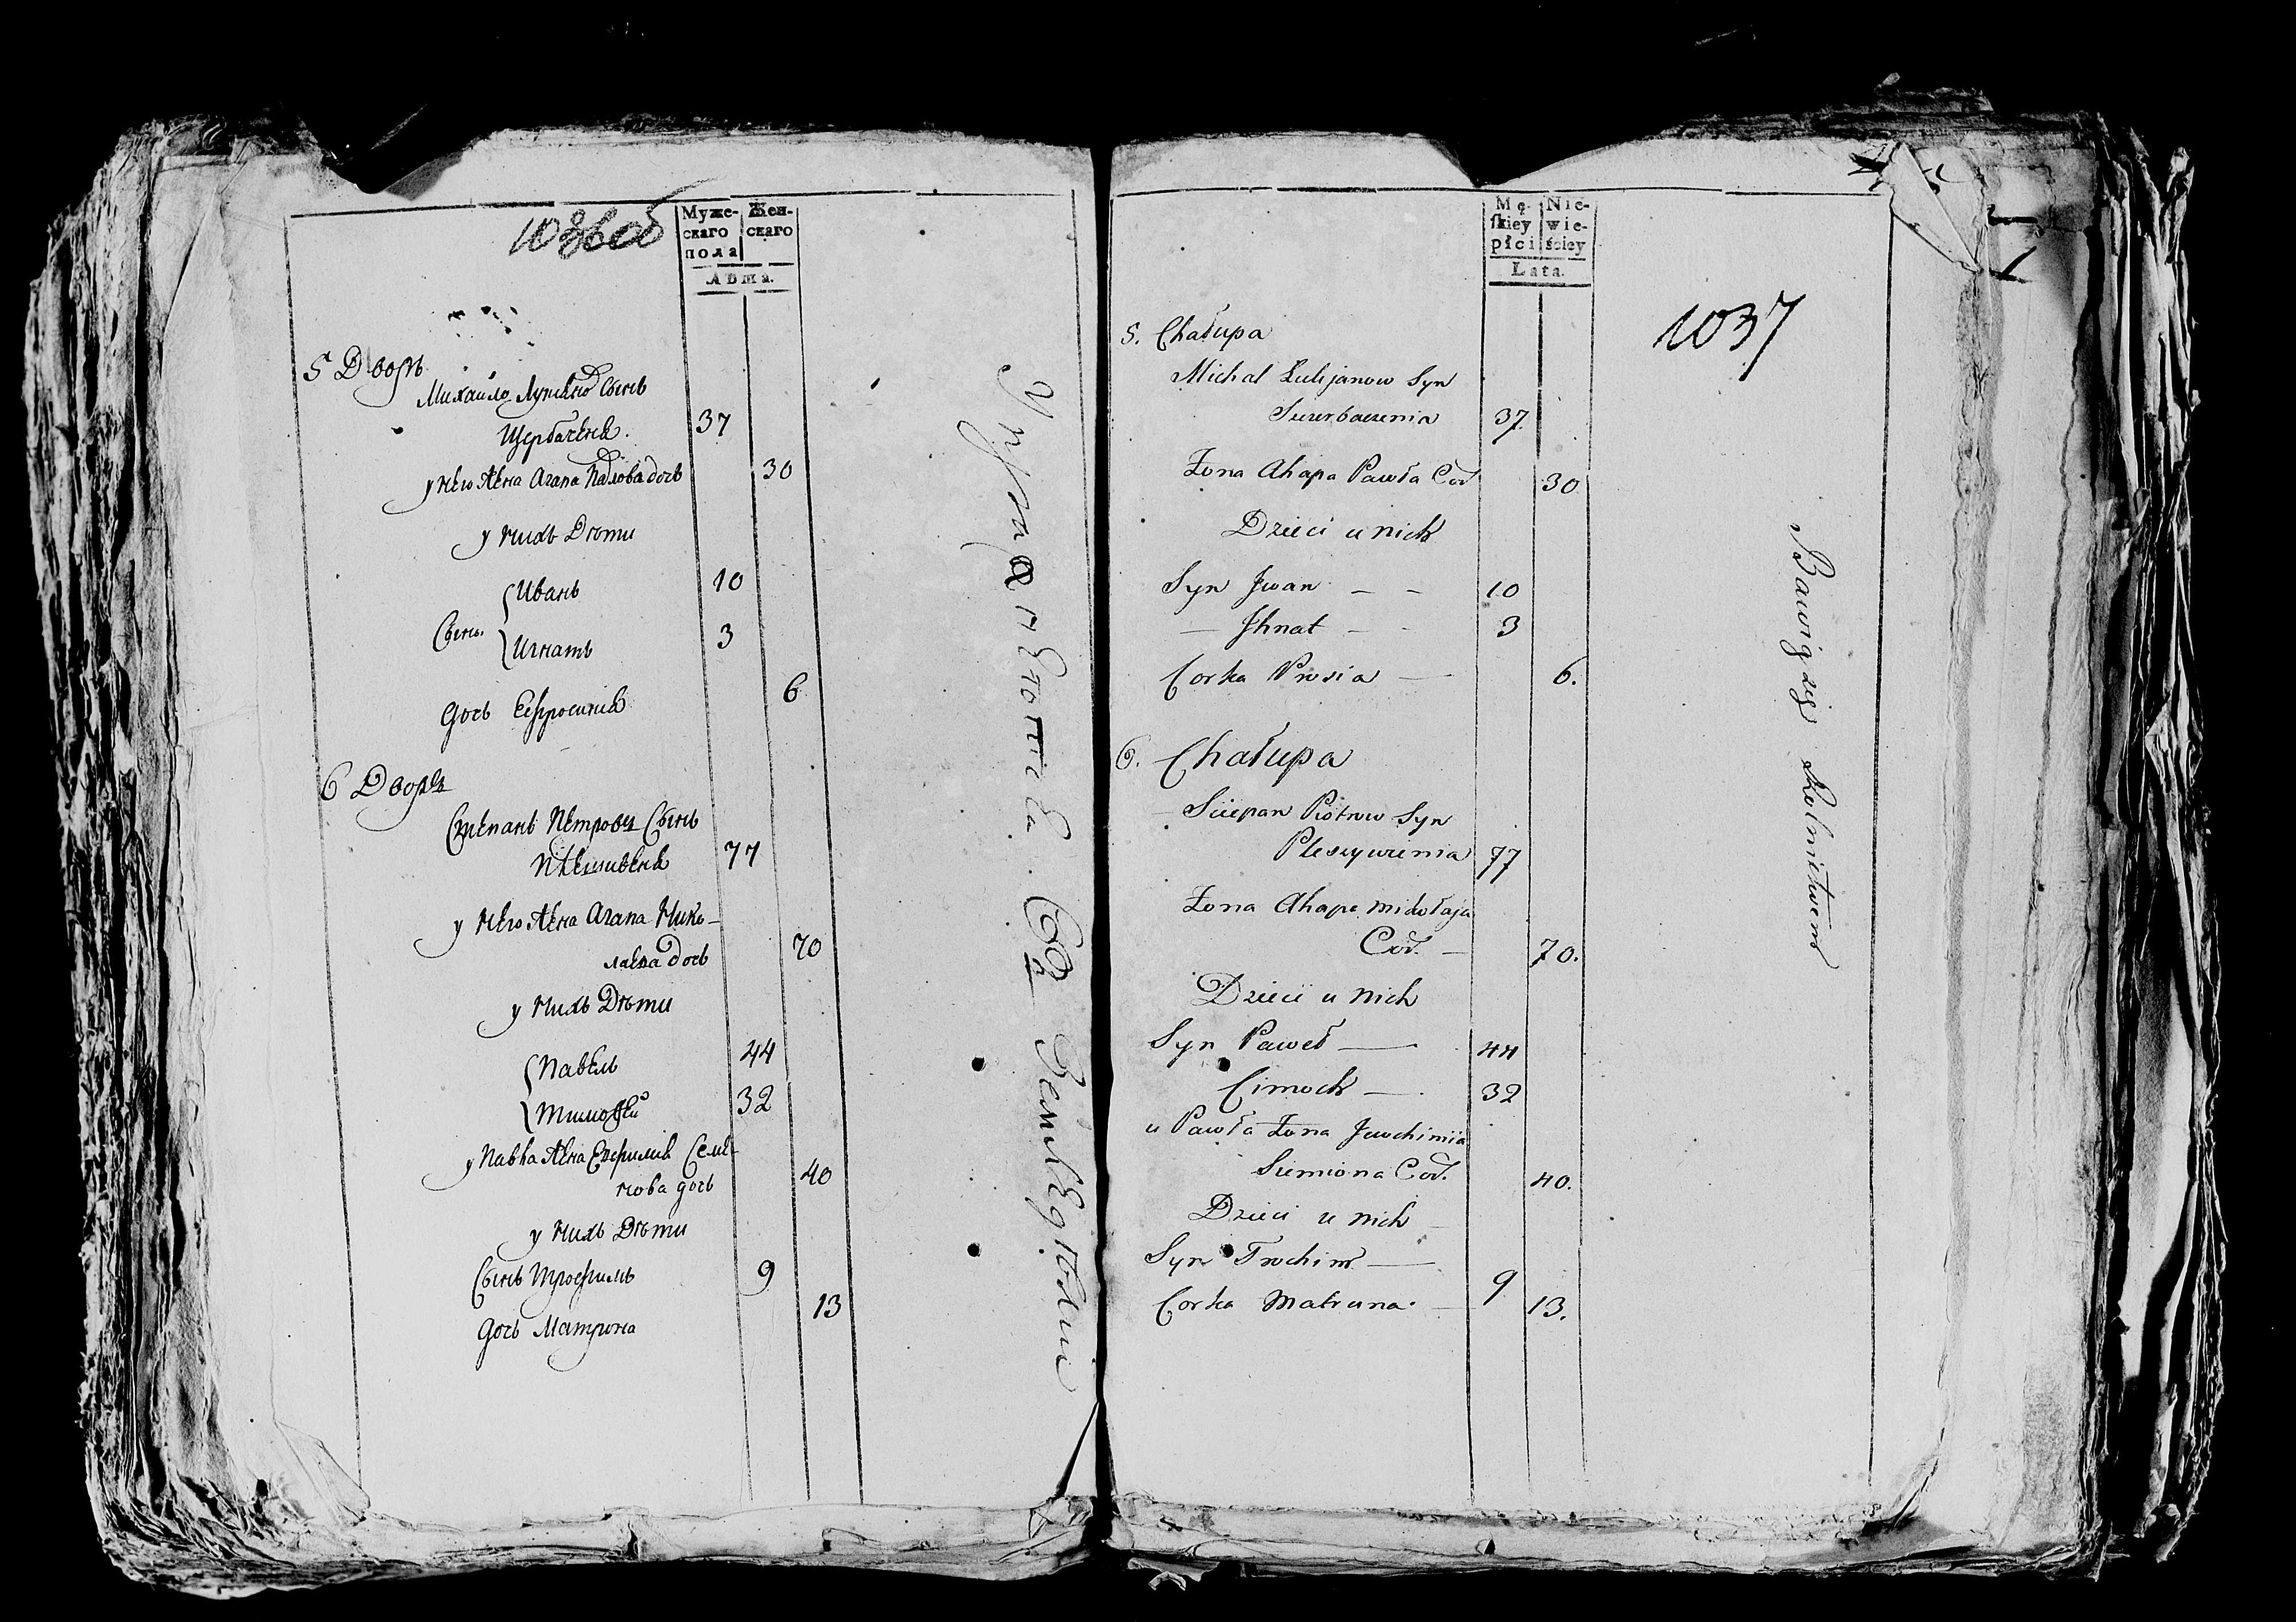 1036об
Муже-
скаго
пола
Жен-
скаго
Лѣта.
5 Дворъ
Михайло Лукьяновъ Сынъ
Щербаченя.
37
у него жена Агапа Павлова дочь
30
у нихъ Дѣти
Сынъ.
Иванъ
10
Игнатъ
3
дочь Ефросиния
6
6 Дворъ
Степанъ Петровъ Сынъ
Плешивеня
77
у него жена Агапа Нико-
лаева дочь
70
у нихъ Дѣти
Павелъ
44
Тимофей
32
у Павла жена Евфимия Семе-
нова дочь
40
у нихъ Дѣти
Сынъ Трофимъ
9
дочь Матрона
13
Mę-
ſkiey
płci
Nie-
wie-
ściey
Lata.
1037
5. Chałupa
Michal Lukjanow Syn
Szczerbaczenia
37.
Żona Ahapa Pawła Cor
30
Dzieci u nich
Syn Jwan – –
10
— Jhnat – -
3
Corka Prosia —
6.
6. Chałupa
Sciepan Piotrow Syn
Pleszywienia
77
Żona Ahapa Mikołaja
Cor. –
70.
Dzieci u nich
Syn Paweł —
44
Cimoch —
32
u Pawła Żona Jewchimija
Siemiona Cor.
40.
Dzieci u nich
Syn Trochim —
9
Corka Matruna. –
13.
Bawią się Rolnictwem